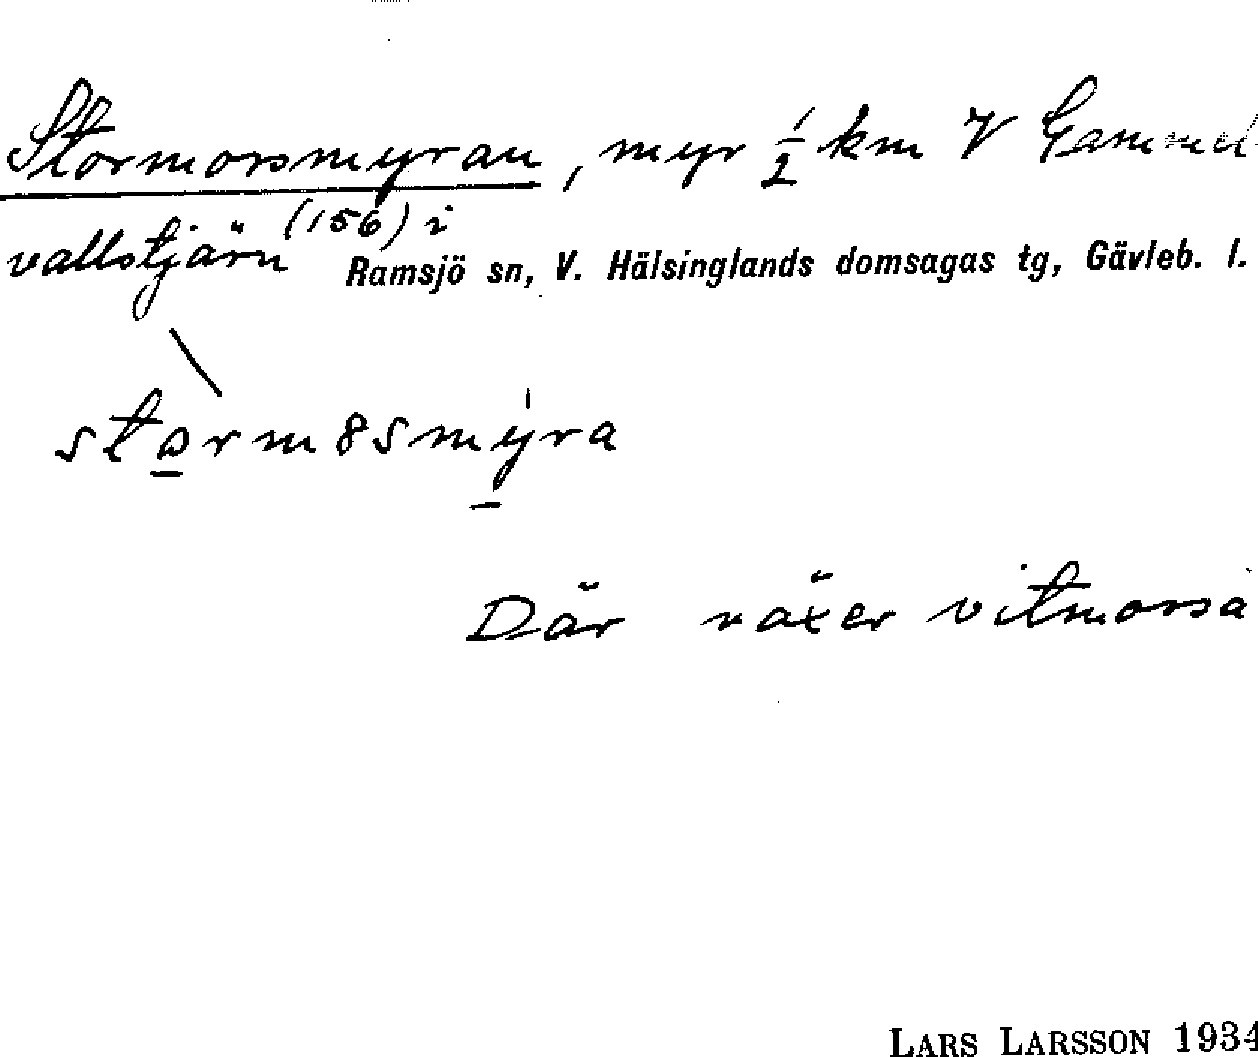 Stormorsmyran, myr ½ km V Gammel-
vallstjärn (156) i
Ramsjö sn, V. Hälsinglands domsagas tg, Gävleb. l.
Där växer vitmossa
LARS LARSSON 1934